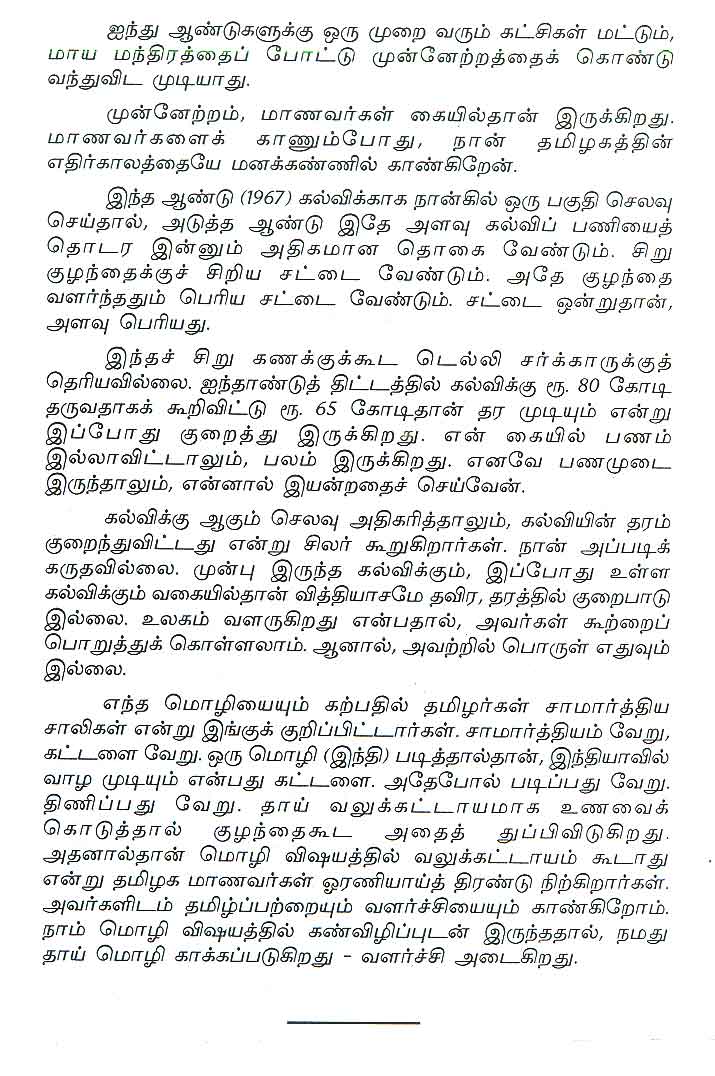 ஐந்து ஆண்டுகளுக்கு ஒரு முறை வரும் கட்சிகள் மட்டும்,
மாய மந்திரத்தைப் போட்டு முன்னேற்றத்தைக் கொண்டு
வந்துவிட முடியாது.
முன்னேற்றம், மாணவர்கள் கையில்தான் இருக்கிறது.
மாணவர்களைக் காணும்போது, நான் தமிழகத்தின்
எதிர்காலத்தையே மனக்கண்ணில் காண்கிறேன்.
இந்த ஆண்டு (1967) கல்விக்காக நான்கில் ஒரு பகுதி செலவு
செய்தால், அடுத்த ஆண்டு இதே அளவு கல்விப் பணியைத்
தொடர இன்னும் அதிகமான தொகை வேண்டும். சிறு
குழந்தைக்குச் சிறிய சட்டை வேண்டும். அதே குழந்தை
வளர்ந்ததும் பெரிய சட்டை வேண்டும். சட்டை ஒன்றுதான்,
அளவு பெரியது.
இந்தச் சிறு கணக்குக்கூட டெல்லி சர்க்காருக்குத்
தெரியவில்லை. ஐந்தாண்டுத் திட்டத்தில் கல்விக்கு ரூ. 80 கோடி
தருவதாகக் கூறிவிட்டு ரூ. 65 கோடிதான் தர முடியும் என்று
இப்போது குறைத்து இருக்கிறது. என் கையில் பணம்
இல்லாவிட்டாலும், பலம் இருக்கிறது. எனவே பணமுடை
இருந்தாலும், என்னால் இயன்றதைச் செய்வேன்.
கல்விக்கு ஆகும் செலவு அதிகரித்தாலும், கல்வியின் தரம்
குறைந்துவிட்டது என்று சிலர் கூறுகிறார்கள். நான் அப்படிக்
கருதவில்லை. முன்பு இருந்த கல்விக்கும், இப்போது உள்ள
கல்விக்கும் வகையில்தான் வித்தியாசமே தவிர, தரத்தில் குறைபாடு
இல்லை. உலகம் வளருகிறது என்பதால், அவர்கள் கூற்றைப்
பொறுத்துக் கொள்ளலாம். ஆனால், அவற்றில் பொருள் எதுவும்
இல்லை.
எந்த மொழியையும் கற்பதில் தமிழர்கள் சாமார்த்திய
சாலிகள் என்று இங்குக் குறிப்பிட்டார்கள். சாமார்த்தியம் வேறு,
கட்டளை வேறு. ஒரு மொழி (இந்தி) படித்தால்தான், இந்தியாவில்
வாழ முடியும் என்பது கட்டளை. அதேபோல் படிப்பது வேறு.
திணிப்பது வேறு. தாய் வலுக்கட்டாயமாக உணவைக்
கொடுத்தால் குழந்தைகூட அதைத் துப்பிவிடுகிறது.
அதனால்தான் மொழி விஷயத்தில் வலுக்கட்டாயம் கூடாது
என்று தமிழக மாணவர்கள் ஓரணியாய்த் திரண்டு நிற்கிறார்கள்.
அவர்களிடம் தமிழ்ப்பற்றையும் வளர்ச்சியையும் காண்கிறோம்.
நாம் மொழி விஷயத்தில் கண்விழிப்புடன் இருந்ததால், நமது
தாய் மொழி காக்கப்படுகிறது - வளர்ச்சி அடைகிறது.